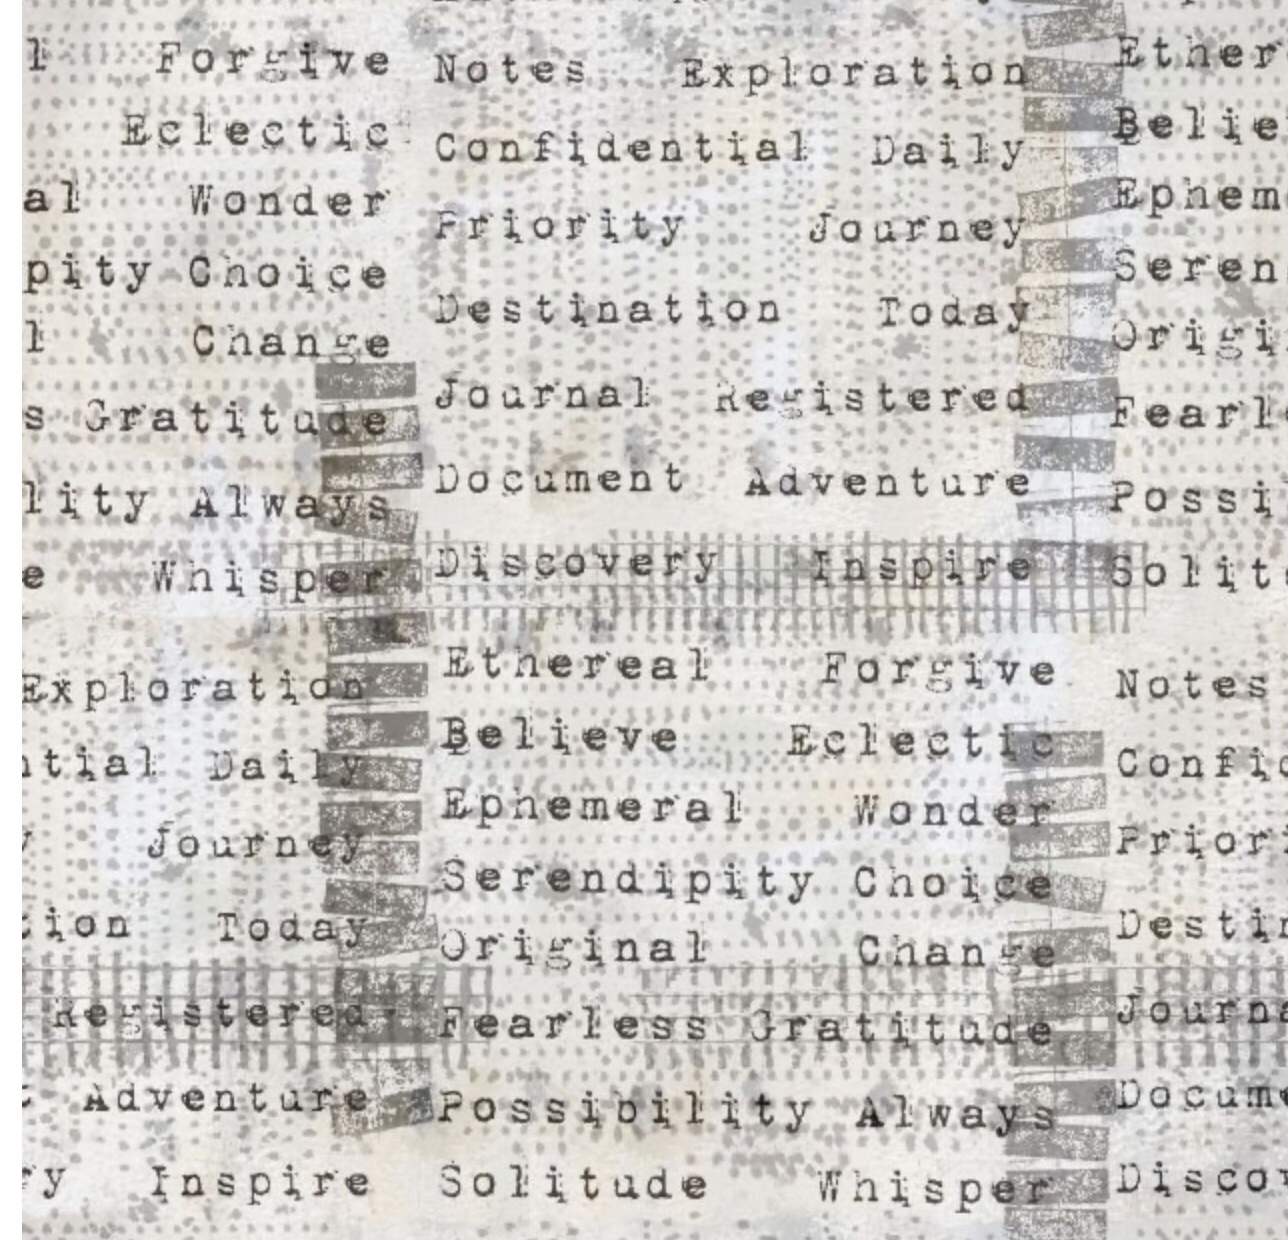 l Forgive
Eclectic
al Wonder
pity Choice
l Change
s Gratitude
lity Always
e Whisper
Exploration
tial Daily
Journey
tion Today
Registered
Adventure
ry Inspire
Notes Exploration
Confidential Daily
Priority Journey
Destination Today
Journal Registered
Document Adventure
Discovery Inspire
Ethereal Forgive
Believe Eclectic
Ephemeral Wonder
Serendipity Choice
Original Change
Fearless Gratitude
Possibility Always
Solitude Whisper
Ether
Belie
Ephem
Seren
Origi
Fearl
Possi
Solit
Notes
Confi
Prior
Destin
Journa
Docume
Disco